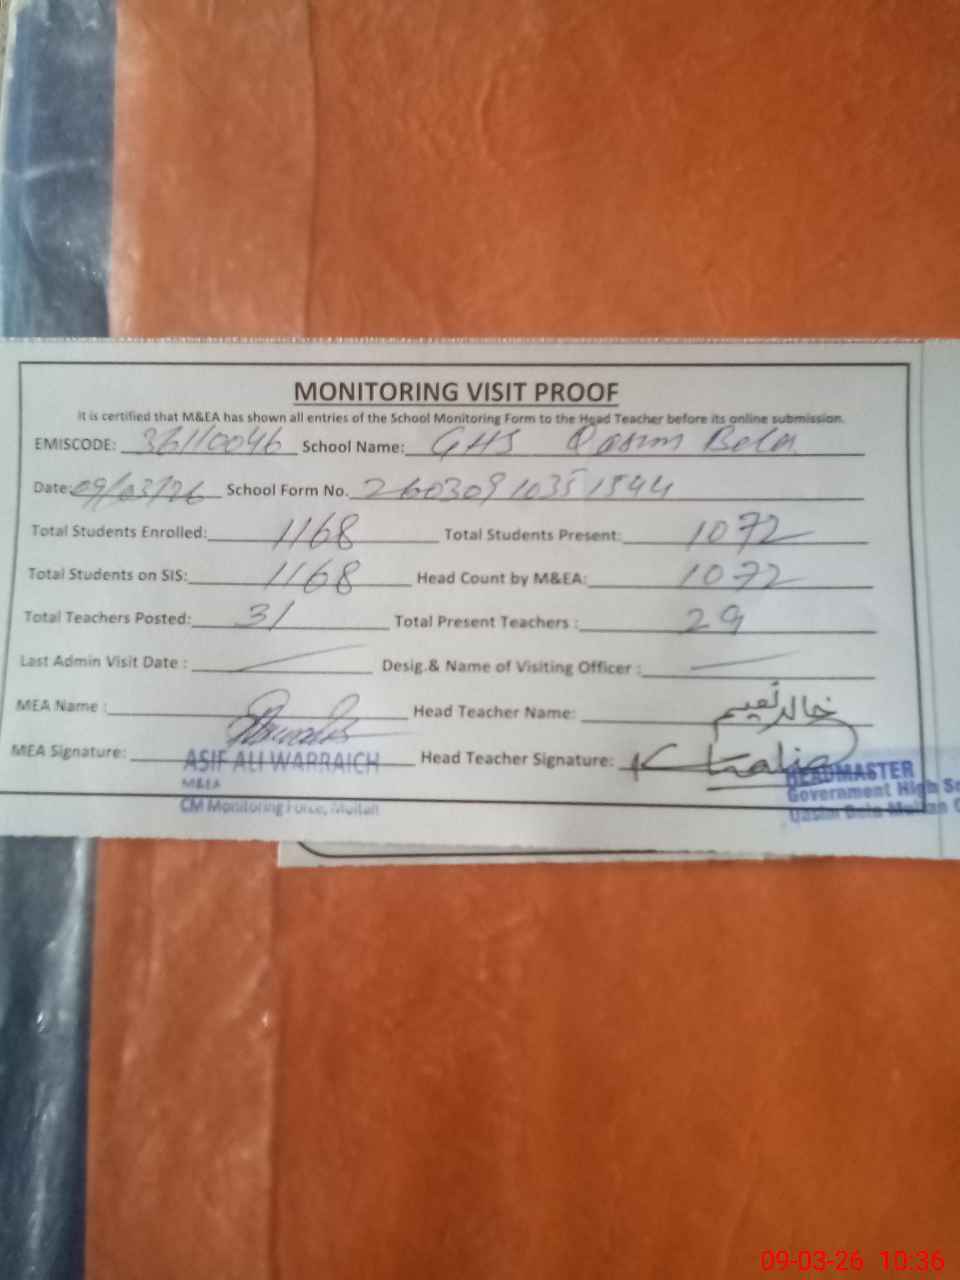 MONITORING VISIT PROOF
It is certified that M&EA has shown all entries of the School Monitoring Form to the Head Teacher before its online submission.
EMISCODE: 36110046 School Name: GHS Qasim Bela
Date: 09/03/26 School Form No. 26030910351544
Total Students Enrolled: 1168 Total Students Present: 1072
Total Students on SIS: 1168 Head Count by M&EA: 1072
Total Teachers Posted: 31 Total Present Teachers : 29
Last Admin Visit Date : Desig.& Name of Visiting Officer :
MEA Name : Head Teacher Name: خالد نعیم
MEA Signature: Head Teacher Signature: Khalid
ASIF ALI WARRAICH
M&EA
CM Monitoring Force, Multan
HEADMASTER
Government High Sc
Qasim Bela Multan C
09-03-26 10:36